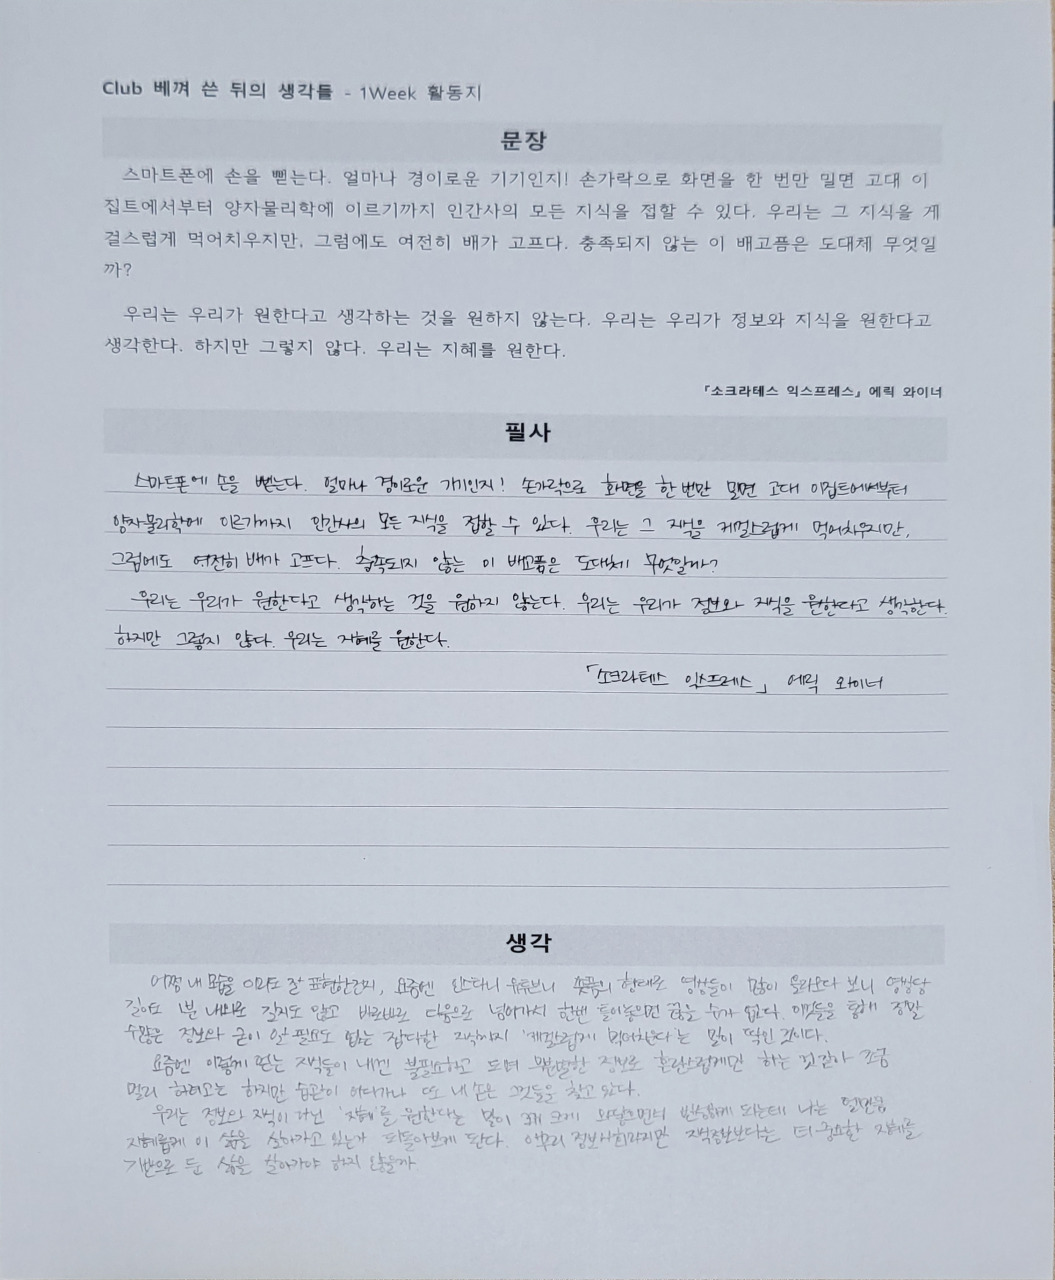 Club 베껴 쓴 뒤의 생각들 - 1Week 활동지
문장
스마트폰에 손을 뻗는다. 얼마나 경이로운 기기인지! 손가락으로 화면을 한 번만 밀면 고대 이
집트에서부터 양자물리학에 이르기까지 인간사의 모든 지식을 접할 수 있다. 우리는 그 지식을 게
걸스럽게 먹어치우지만, 그럼에도 여전히 배가 고프다. 충족되지 않는 이 배고픔은 도대체 무엇일
까?
우리는 우리가 원한다고 생각하는 것을 원하지 않는다. 우리는 우리가 정보와 지식을 원한다고
생각한다. 하지만 그렇지 않다. 우리는 지혜를 원한다.
「소크라테스 익스프레스」 에릭 와이너
필사
스마트폰에 손을 뻗는다. 얼마나 경이로운 기기인지! 손가락으로 화면을 한 번만 밀면 고대 이집트에서부터
양자물리학에 이르기까지 인간사의 모든 지식을 접할 수 있다. 우리는 그 지식을 게걸스럽게 먹어치우지만,
그럼에도 여전히 배가 고프다. 충족되지 않는 이 배고픔은 도대체 무엇일까?
우리는 우리가 원한다고 생각하는 것을 원하지 않는다. 우리는 우리가 정보와 지식을 원한다고 생각한다.
하지만 그렇지 않다. 우리는 지혜를 원한다.
「소크라테스 익스프레스」 에릭 와이너
생각
어쩜 내 모습을 이리도 잘 표현한건지, 요즘엔 인스타니 유튜브니 숏폼의 형태로 영상들이 많이 올라오다 보니 영상당
길이도 1분 내외로 길지도 않고 바로바로 다음으로 넘어가서 한번 틀어놓으면 끊을 수가 없다. 이것들을 통해 정말
수많은 정보와 굳이 알 필요도 없는 잡다한 지식까지 '게걸스럽게 먹어치운다'는 말이 딱인 것이다.
요즘엔 이렇게 얻는 지식들이 내겐 불필요하고 되려 정보로 혼란스럽게만 하는 것 같아 조금
멀리 하려고는 하지만 습관이 어디가나 또 내 손은 그것들을 찾고 있다.
우리는 정보와 지식이 아닌 '지혜'를 원한다는 말이 꽤 크게 와닿으면서 반성하게 되는데 나는 얼만큼
지혜롭게 이 삶을 살아가고 있는가 되돌아보게 된다. 아무리 정보사회라지만 지식정보보다는 더 중요한 지혜를
기반으로 둔 삶을 살아가야 하지 않을까